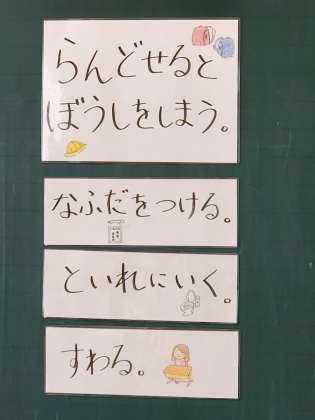 らんどせると
ぼうしをしまう。
なふだをつける。
といれにいく。
すわる。